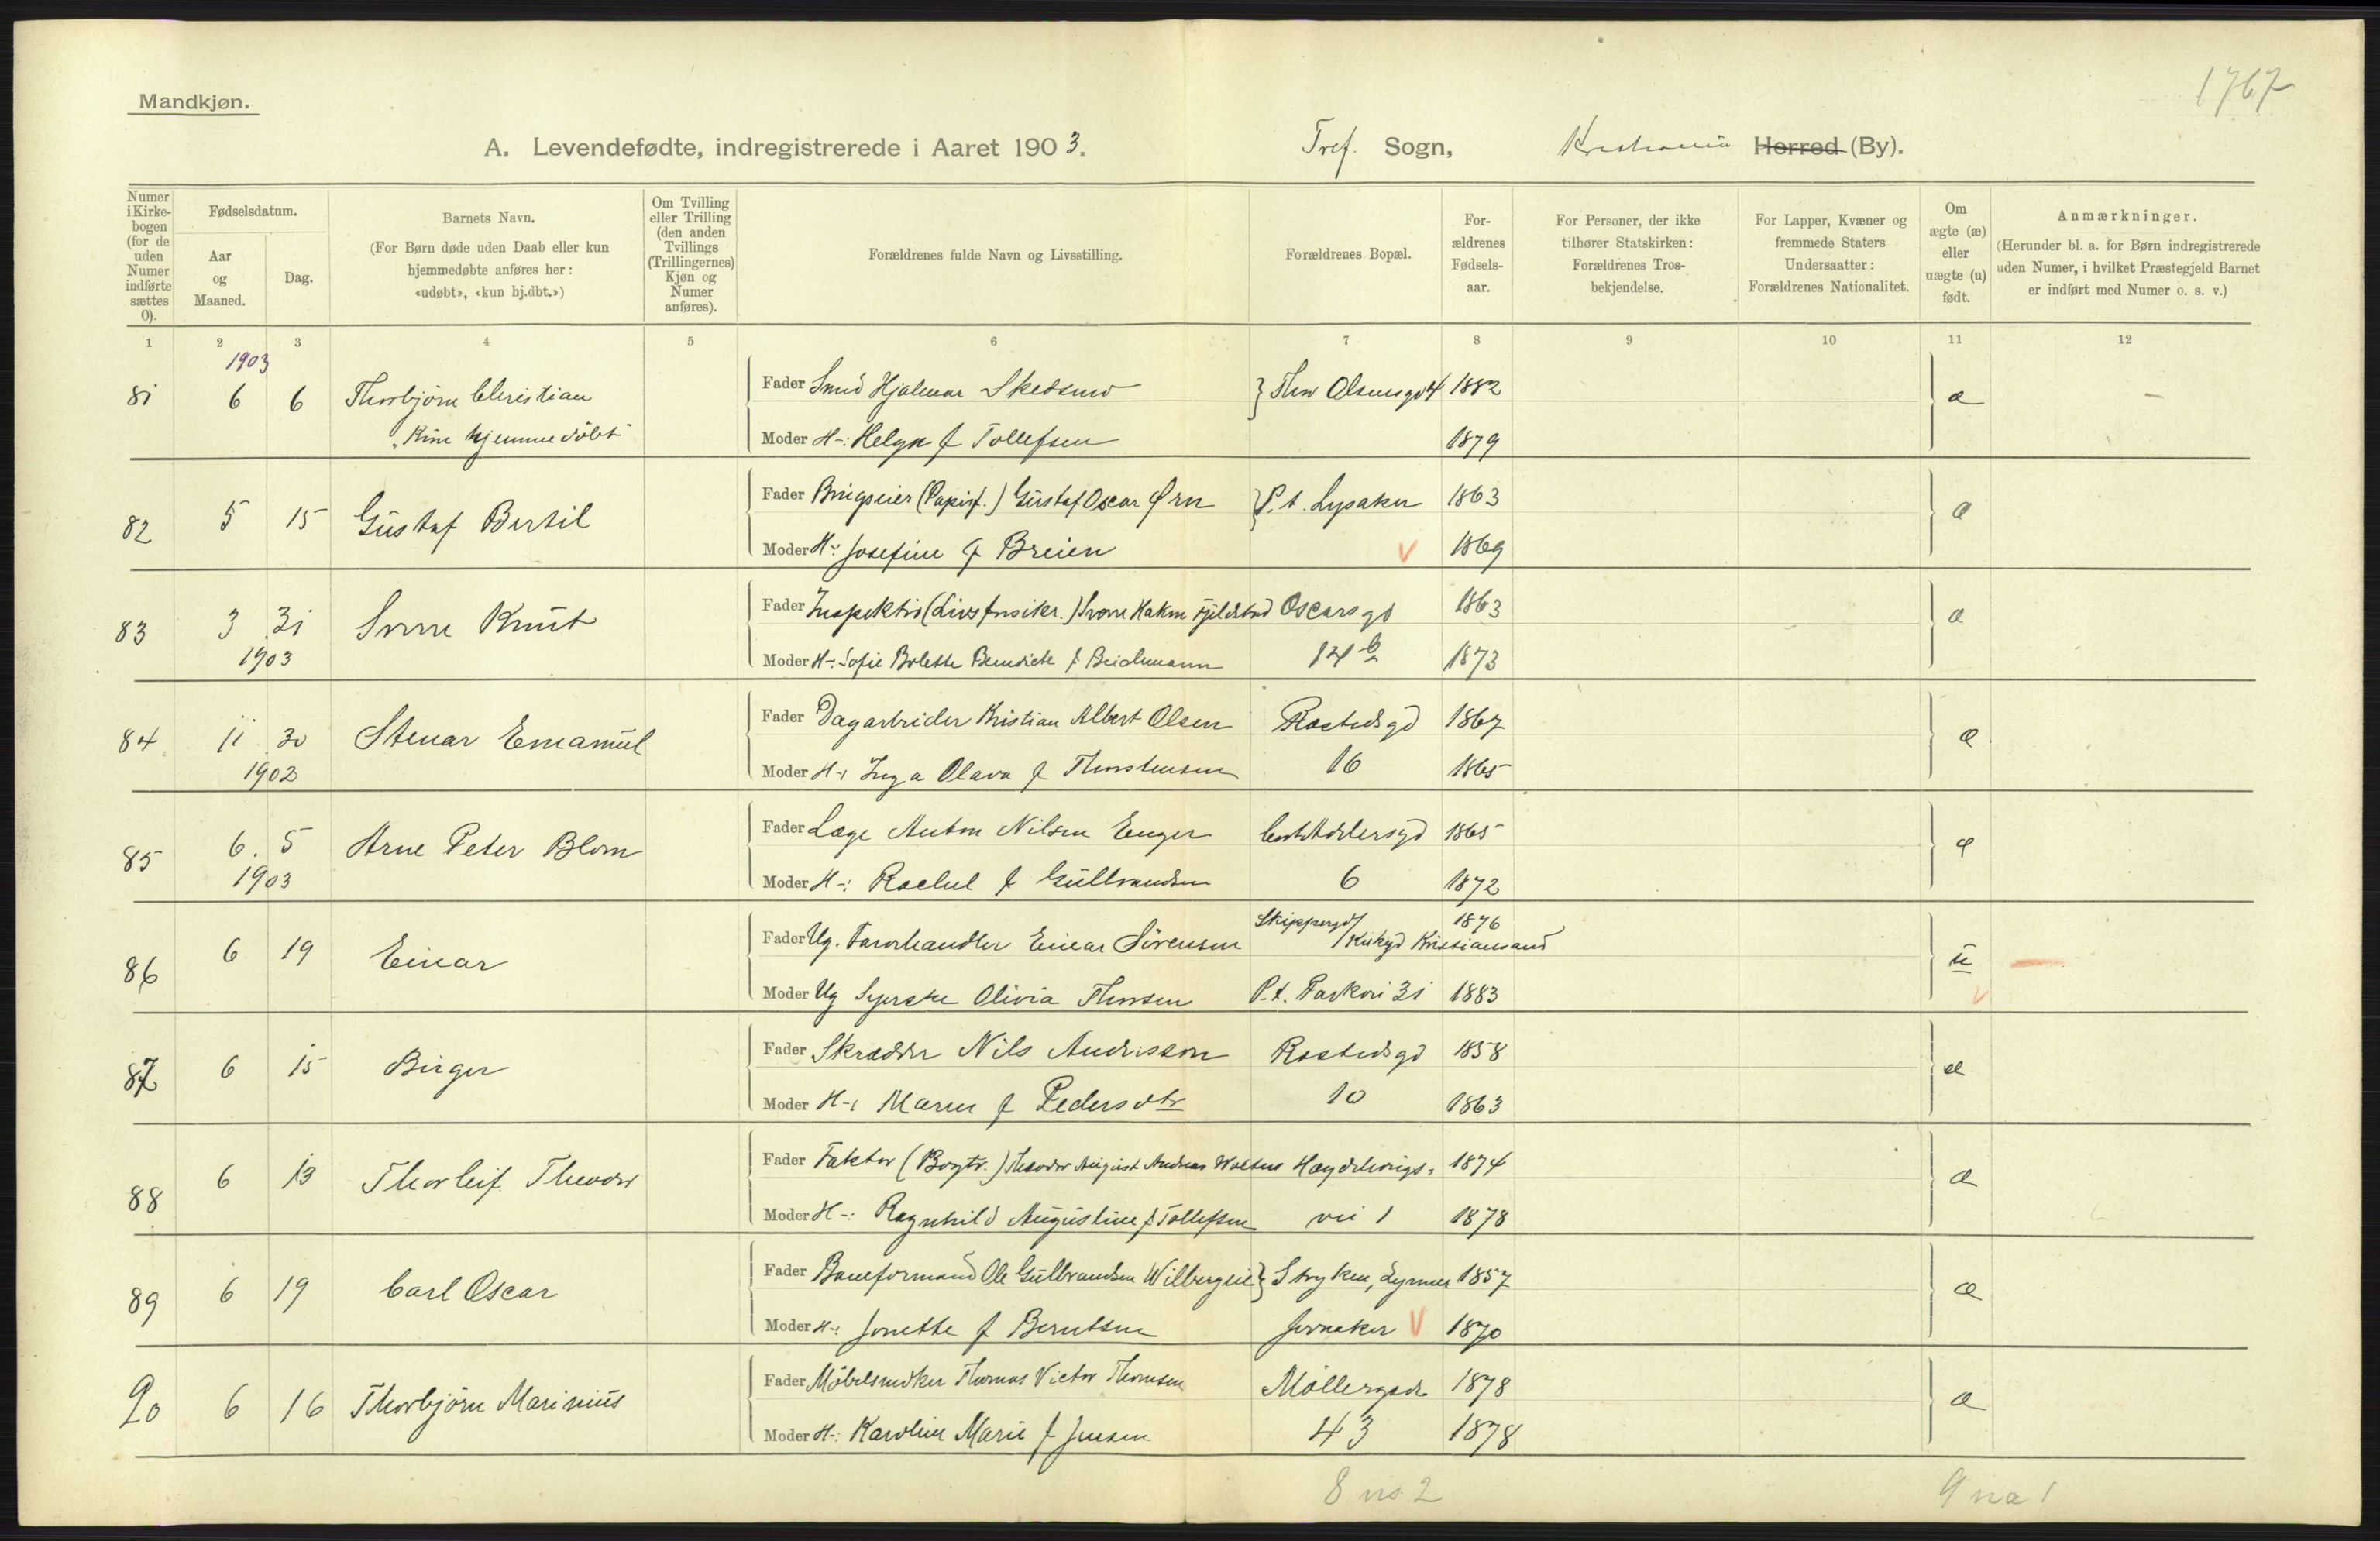 1767
Mandkjøn.
A. Levendefødte, indregistrerede i Aaret 1903. Tref. Sogn, Kristiania Herred (By).
Numer i Kirkebogen (for de uden Numer indførte sættes 0).
Fødselsdatum.
Aar og Maaned.
Dag.
Barnets Navn.
(For Børn døde uden Daab eller kun hjemmedøbte anføres her: «udøbt», «kun hj.dbt.»)
Om Tvilling eller Trilling (den anden Tvillings (Trillingernes) Kjøn og Numer anføres).
Forældrenes fulde Navn og Livsstilling.
Forældrenes Bopæl.
Forældrenes Fødselsaar.
For Personer, der ikke tilhører Statskirken: Forældrenes Trosbekjendelse.
For Lapper, Kvæner og fremmede Staters Undersaatter: Forældrenes Nationalitet.
Om ægte (æ) eller uægte (u) født.
Anmærkninger.
(Herunder bl. a. for Børn indregistrerede uden Numer, i hvilket Præstegjeld Barnet er indført med Numer o. s. v.)
1 2 3 4 5 6 7 8 9 10 11 12
1903
81 6 6 Thorbjørn Christian Fader Smed Hjalmar Skedsmo } Thv Olsensgd 4 1882 æ –
"Kun hjemmedøbt" Moder H-: Helga f Tollefsen 1879
82 5 15 Gustaf Bertil Fader Brugseier (Papirf.) Gustaf Oscar Ørn } P.t. Lysaker 1863 æ
Moder H-: Josefine f Breien V 1869
83 3 31 Sverre Knut Fader Inspektør (Livsforsikr.) Sverre Hakon Fjeldstad Oscarsgd 1863 æ
1903 Moder H-: Sofie Bolette Benedicte f Beichmann 14 b 1873
84 11 30 Stenar Emanuel Fader Dagarbeider Kristian Albert Olsen Rostedsgd 1867 æ
1902 Moder H-: Inga Olava f Thorstensen 16 1865
85 6. 5 Arne Peter Blom Fader Læge Anton Nilsen Enger Cort Adelersgd 1865 æ
1903 Moder H-: Rachel f Gulbrandsen 6 1872
86 6 19 Einar Fader Ug. Farvehandler Einar Sørensen Skippergd / Kirkgd Kristiansand 1876 u
Moder Ug Syerske Olivia Thorsen P.t. Parkvei 31 1883 V
87 6 15 Birger Fader Skrædder Nils Andersson Rostedsgd 1858 æ
Moder H-: Maren f Pedersdtr 10 1863
88 6 13 Thorleif Theodor Fader Faktor (Bogtr.) Theodor August Andreas Wolters Hægdehougs- 1874 æ
Moder H-: Ragnhild Augustine f Tollefsen vei 1 1878
89 6 19 Carl Oscar Fader Baneformand Ole Gulbrandsen Wilbergeie } Stryken, Lynner 1857 æ
Moder H-: Jonette f Berntsen Jevnaker V 1870
90 6 16 Thorbjørn Marinius Fader Møbelsnedker Thomas Victor Thomsen Møllergade 1878 æ
Moder H-: Karoline Marie f Jensen 43 1878
8 us 2 9 na 1